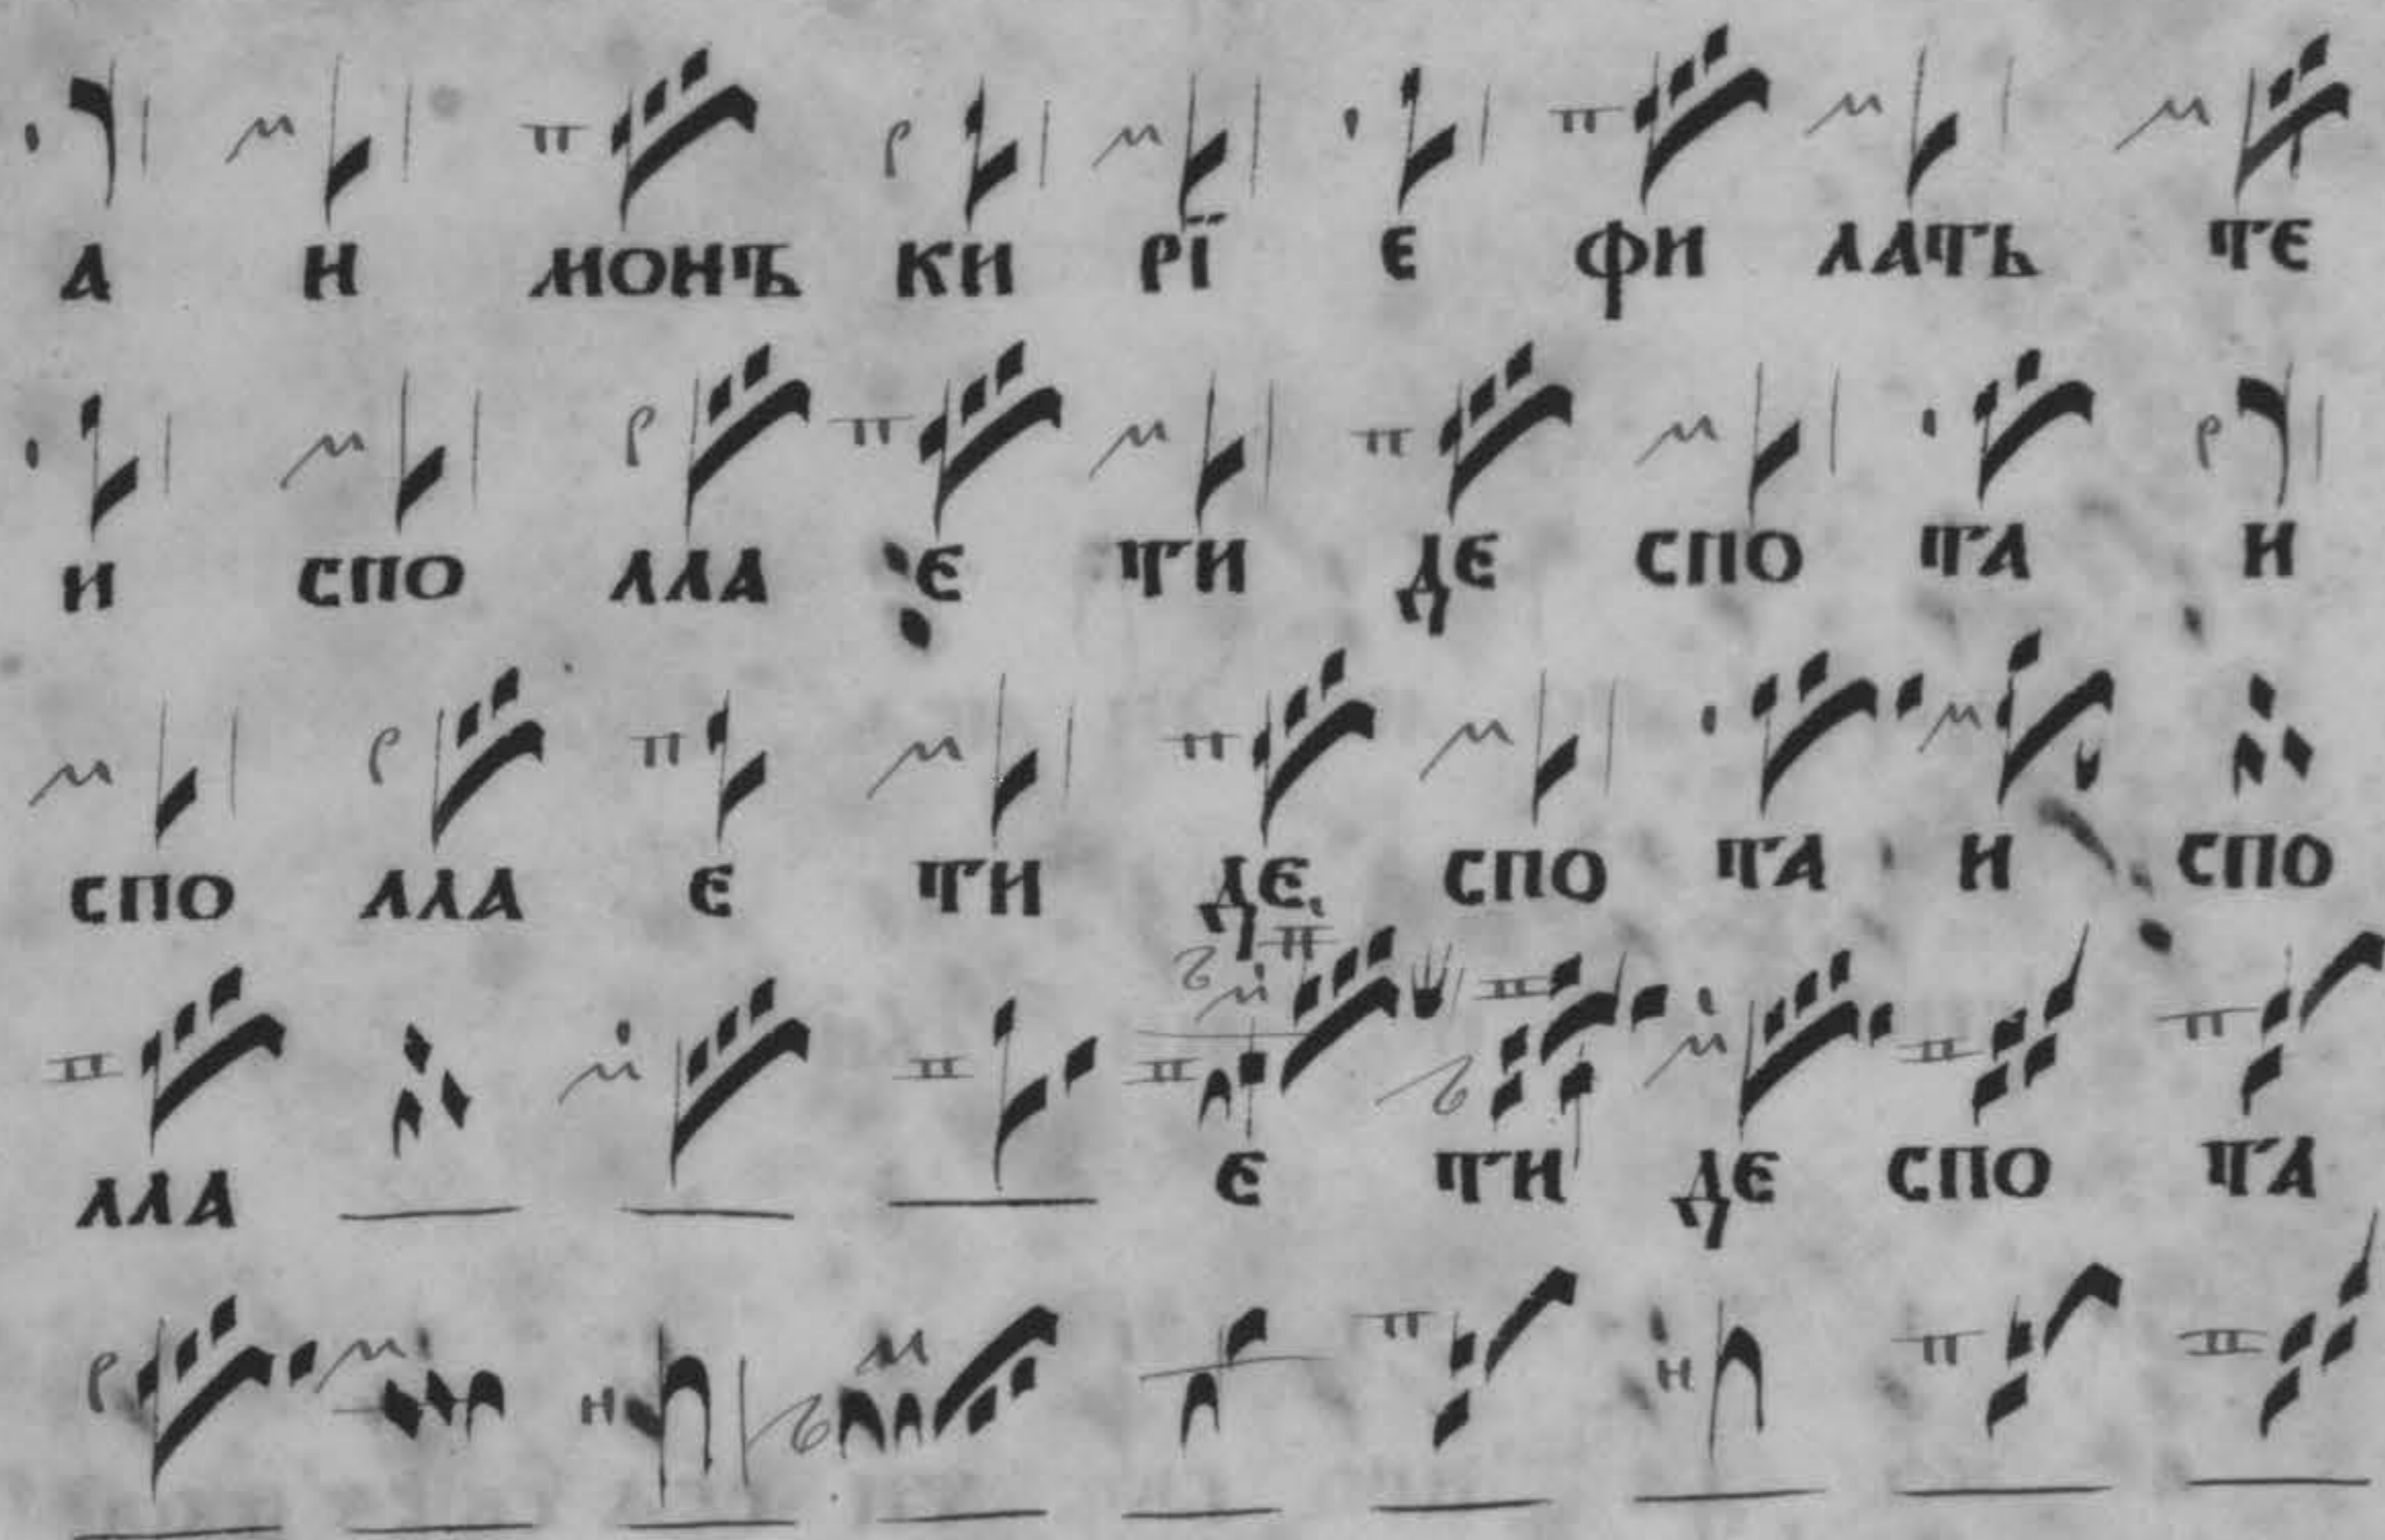 А Н МОНЪ КИ РЇ Е ФИ ЛАТЬ ТЕ
И СПО ЛЛА Е ТИ ДЕ СПО ТА И
СПО ЛЛА Е ТИ ДЕ СПО ТА И СПО
ЛЛА Е ТИ ДЕ СПО ТА